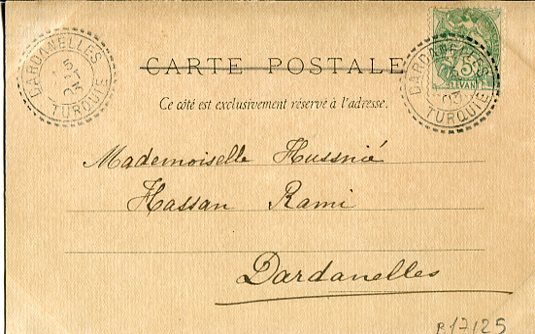 DARDANELLES
5
03
TURQUIE
CARTE POSTALE
5
LEVANT
DARDANELLES
03
TURQUIE
Ce côté est exclusivement réservé à l'adresse.
Mademoiselle Husnié
Hassan Rami
Dardanelles
B17125